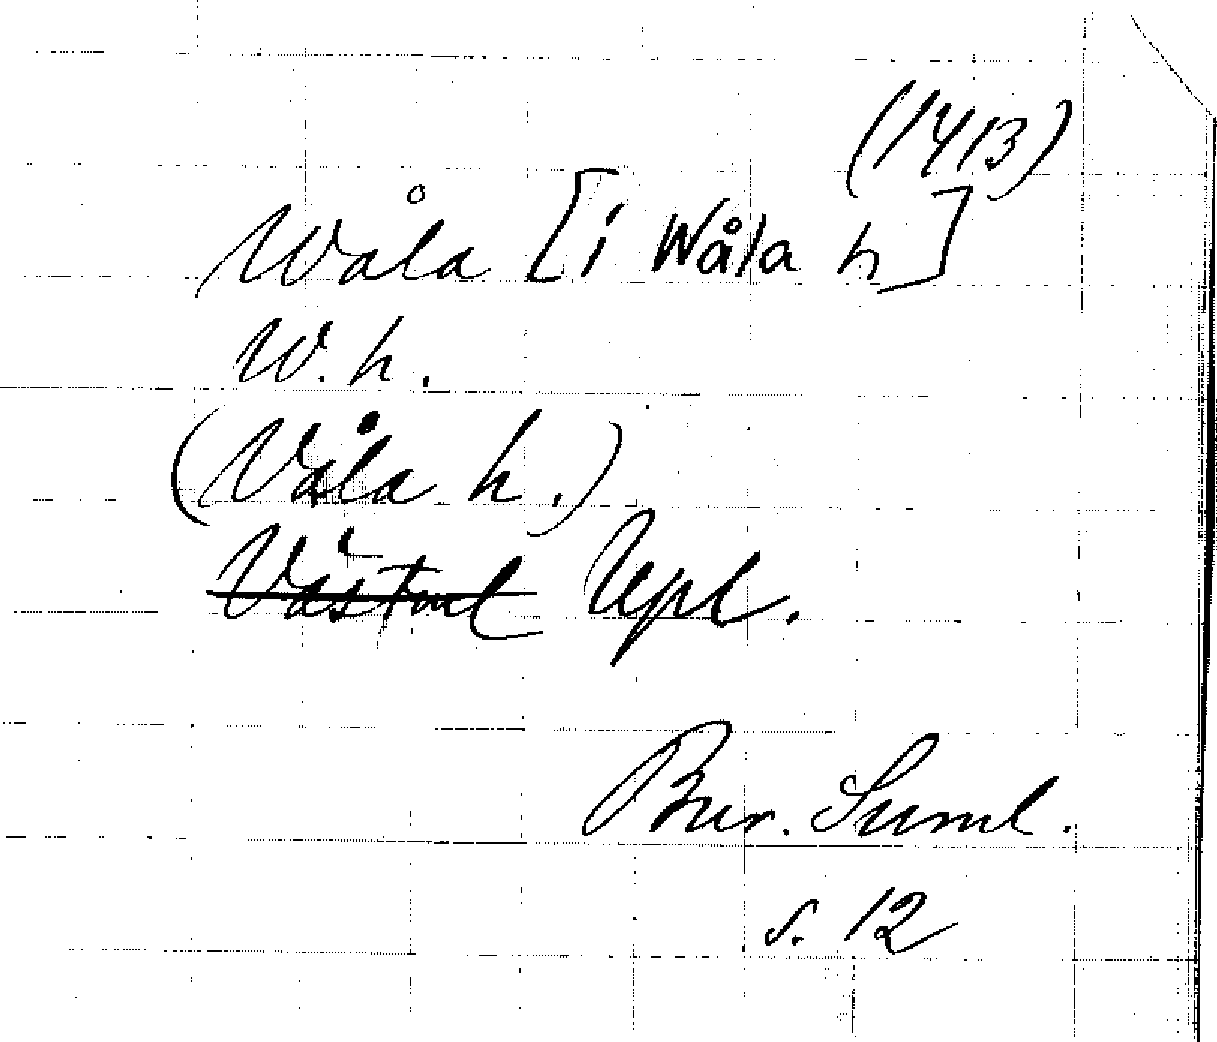 (1413)
Wåla [i Wåla h]
W. h.
(Våla h.)
Västml Upl.
Bur. Suml.
s. 12